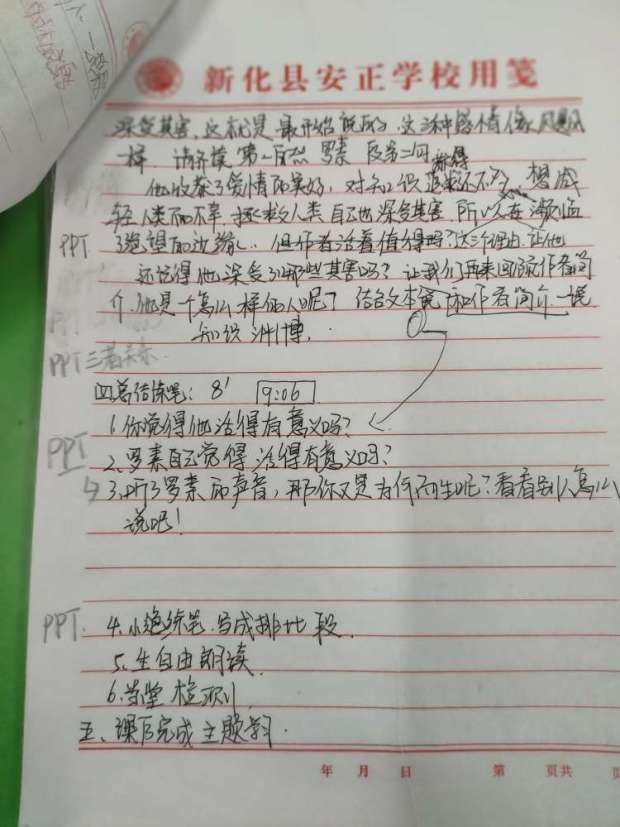 新化县安正学校用笺
深受其害,这就是最开始说的,这三种感情像飓风
样,请齐读第一自然 罗素 段务二问
他收获了爱情的美好,对知识追求还不够,想减
轻人类的不幸,拯救人类自己也深受其害,所以在濒临
PPT 了绝望的边缘。但作者活着值得吗?这三个理由让他
还记得他深受了哪些其害吗?让我们再来回顾作者简
介,他是一个怎么样的人呢?结合文本和作者简介一说
知识渊博.
PPT 三者关系.
四总结练笔: 8' 9:06
1.你觉得他活得有意义吗?
PPT 2.罗素自己觉得活得有意义吗?
3.听了罗素的声音,那你又是为何而生呢?看看别人怎么
说吧!
PPT. 4.小组练笔.写成排比段.
5.生自由朗读.
6.当堂检测
五、课后完成主题学习.
年 月 日 第 页共 页